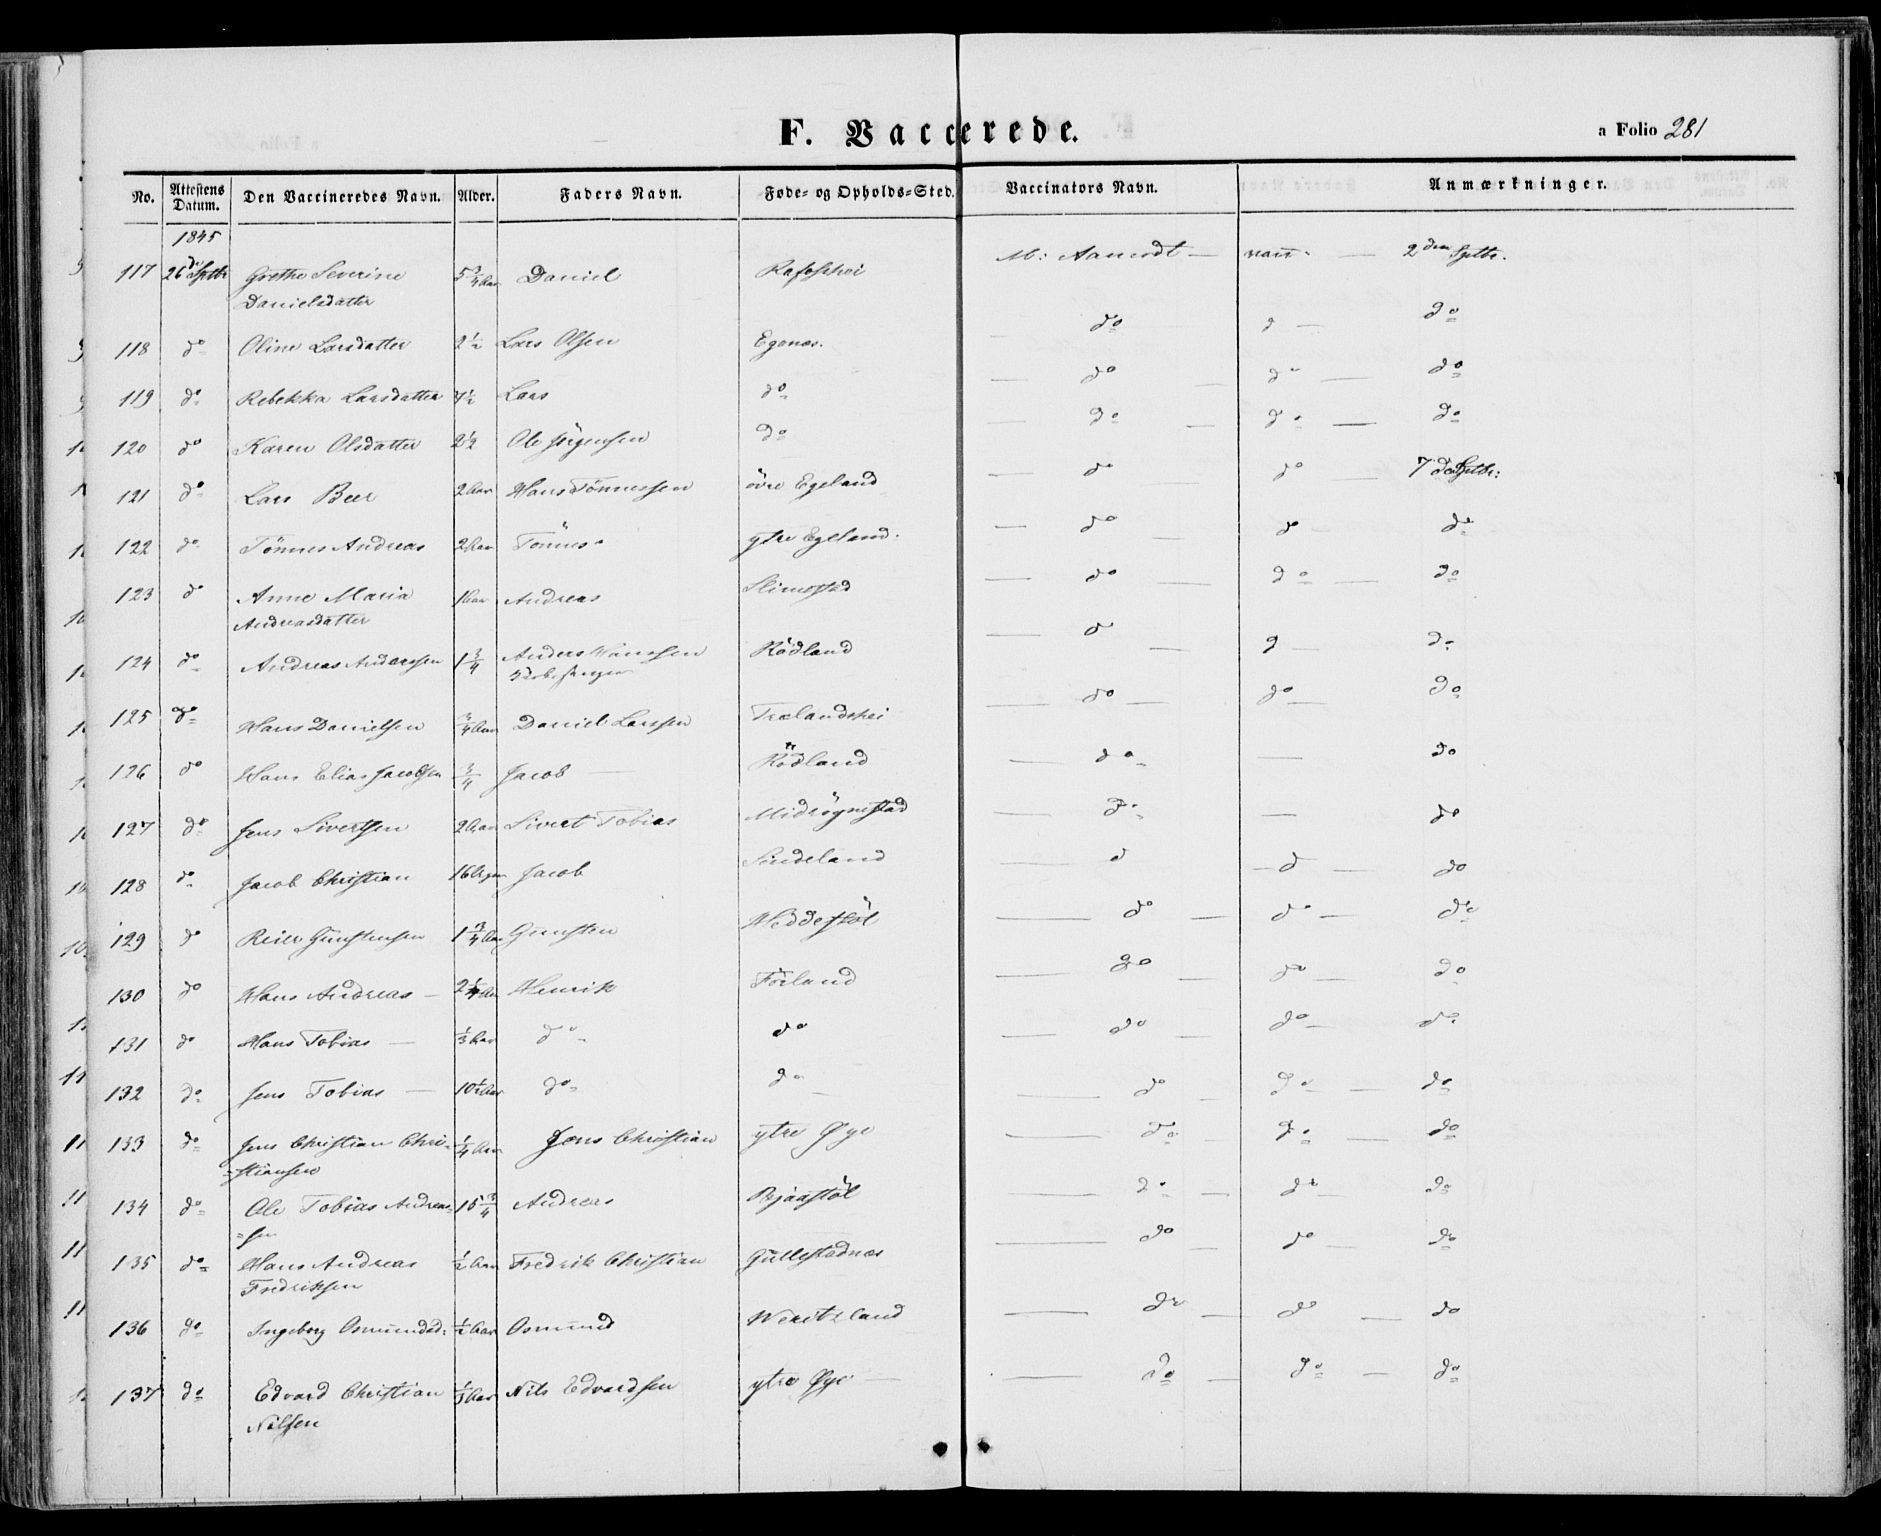 F. Vaccerede.
a Folio 281
No. Attestens Datum. Den Vaccineredes Navn. Alder. Faders Navn. Føde- og Opholds-Sted. Vaccinators Navn. Anmærkninger.
1845
117 26de Sptbr Grethe Severine 5 3/4 Aar Daniel M: Aamodt — — 2den Sptbr.
Danielsdatter
118 do Oline Larsdatter 2 1/2 Lars Olsen Egenæs. — do d — do
119 do Rebekka Larsdatter 4 1/2 Lars do — do — do — do
120 do Karen Olsdatter 2 1/2 Ole Jörgensen do — do — do — do
121 do Lars Beer 2 Aar Hans Tönnessen övre Egeland — do — do — 7de Sptbr:
122 do Tönnes Andreas 2 Aar Tönnes ytre Egeland. — do — do do
123 do Anne Maria 1 Aar Andreas Slimestad — do — do — do
Andreasdatter
124 do Andreas Anderssen 1 3/4 Anders Hanssen Rödland — do — d — do
125 do Hans Danielsen 3/4 Aar Daniel Larssen Trælandshei — do — do — do
126 do Hans Elias Jacobsen 3/4 Jacob — Rödland — do — do
127 do Jens Sivertsen 2 Aar Sivert Tobias Midtögnestad — do — do
128 do Jacob Christian 16 Jacob Sindeland — d — d — do
129 do Reier Gunstensen 1 3/4 Aar Gunsten Heddestöl — do — do — do
130 do Hans Andreas — 2 Henrik Förland — do — do — do
131 do Hans Tobias — 1/3 Aar do do — do — do — do
132 do Jens Tobias — 10 1/2 Aar do do — — do — do — do
133 do Jens Christian Chri- 1/4 Aar Jens Christian ytre Øye — do — do — do
=stiansen
134 do Ole Tobias Andreas= 15 3/4 Andreas Bjaastöl — do — do — do
=sen
135 do Hans Andreas 1/2 Aar Fredrik Christian Gullestadnes — do — do — do
Fredriksen
136 do Ingeborg Osmundsd: 1/2 Aar Osmund — do — do — do
137 do Edvard Christian 1/3 Aar Nils Edvardsen ytre Øye — — do — do — do
Nilsen